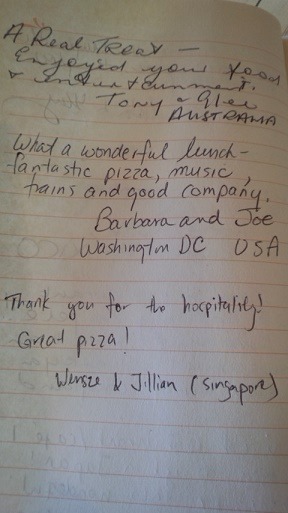 A Real Treat —
Enjoyed your food
& entertainment.
Tony & Glee
AUSTRALIA
What a wonderful lunch-
fantastic pizza, music,
trains and good company.
Barbara and Joe
Washington DC USA
Thank you for the hospitality!
Great pizza!
& Jillian (Singapore)